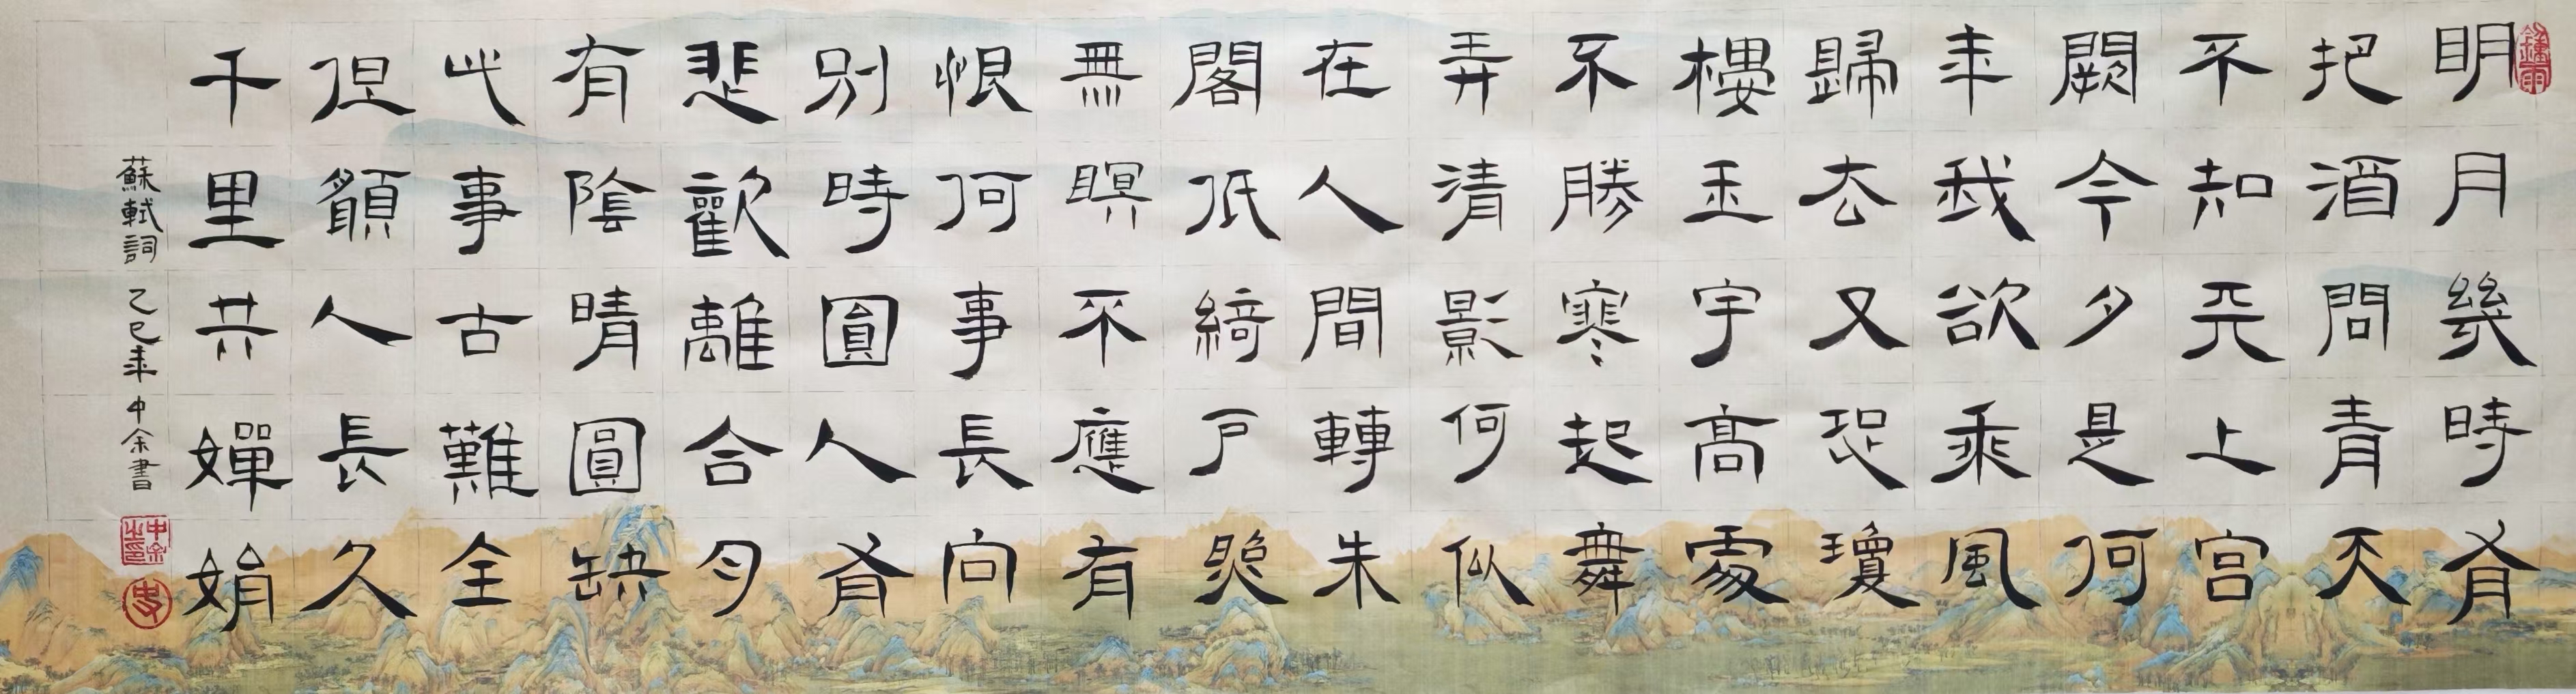 明月幾時有
把酒問青天
不知天上宫
闕今夕是何
年我欲乘風
歸去又恐瓊
樓玉宇高處
不勝寒起舞
弄清影何似
在人間轉朱
閣低綺戶照
無瞑不應有
恨何事長向
別時圓人有
悲歡離合月
有陰晴圓缺
此事古難全
但願人長久
千里共嬋娟
蘇軾詞 乙巳年 中余書
中余之印